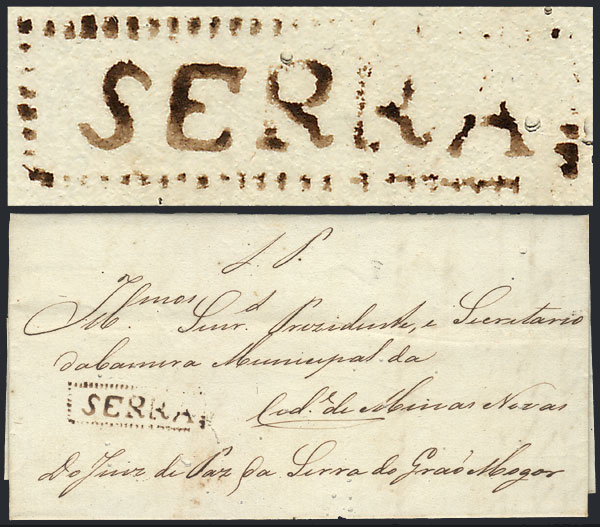 SERRA
S. P.
Illmos Senrd Prezidente, e Secretario
da Camera Municipal da
SERRA
Cide de Minas Novas
Do Juiz de Paz da Serra do Graõ Mogor